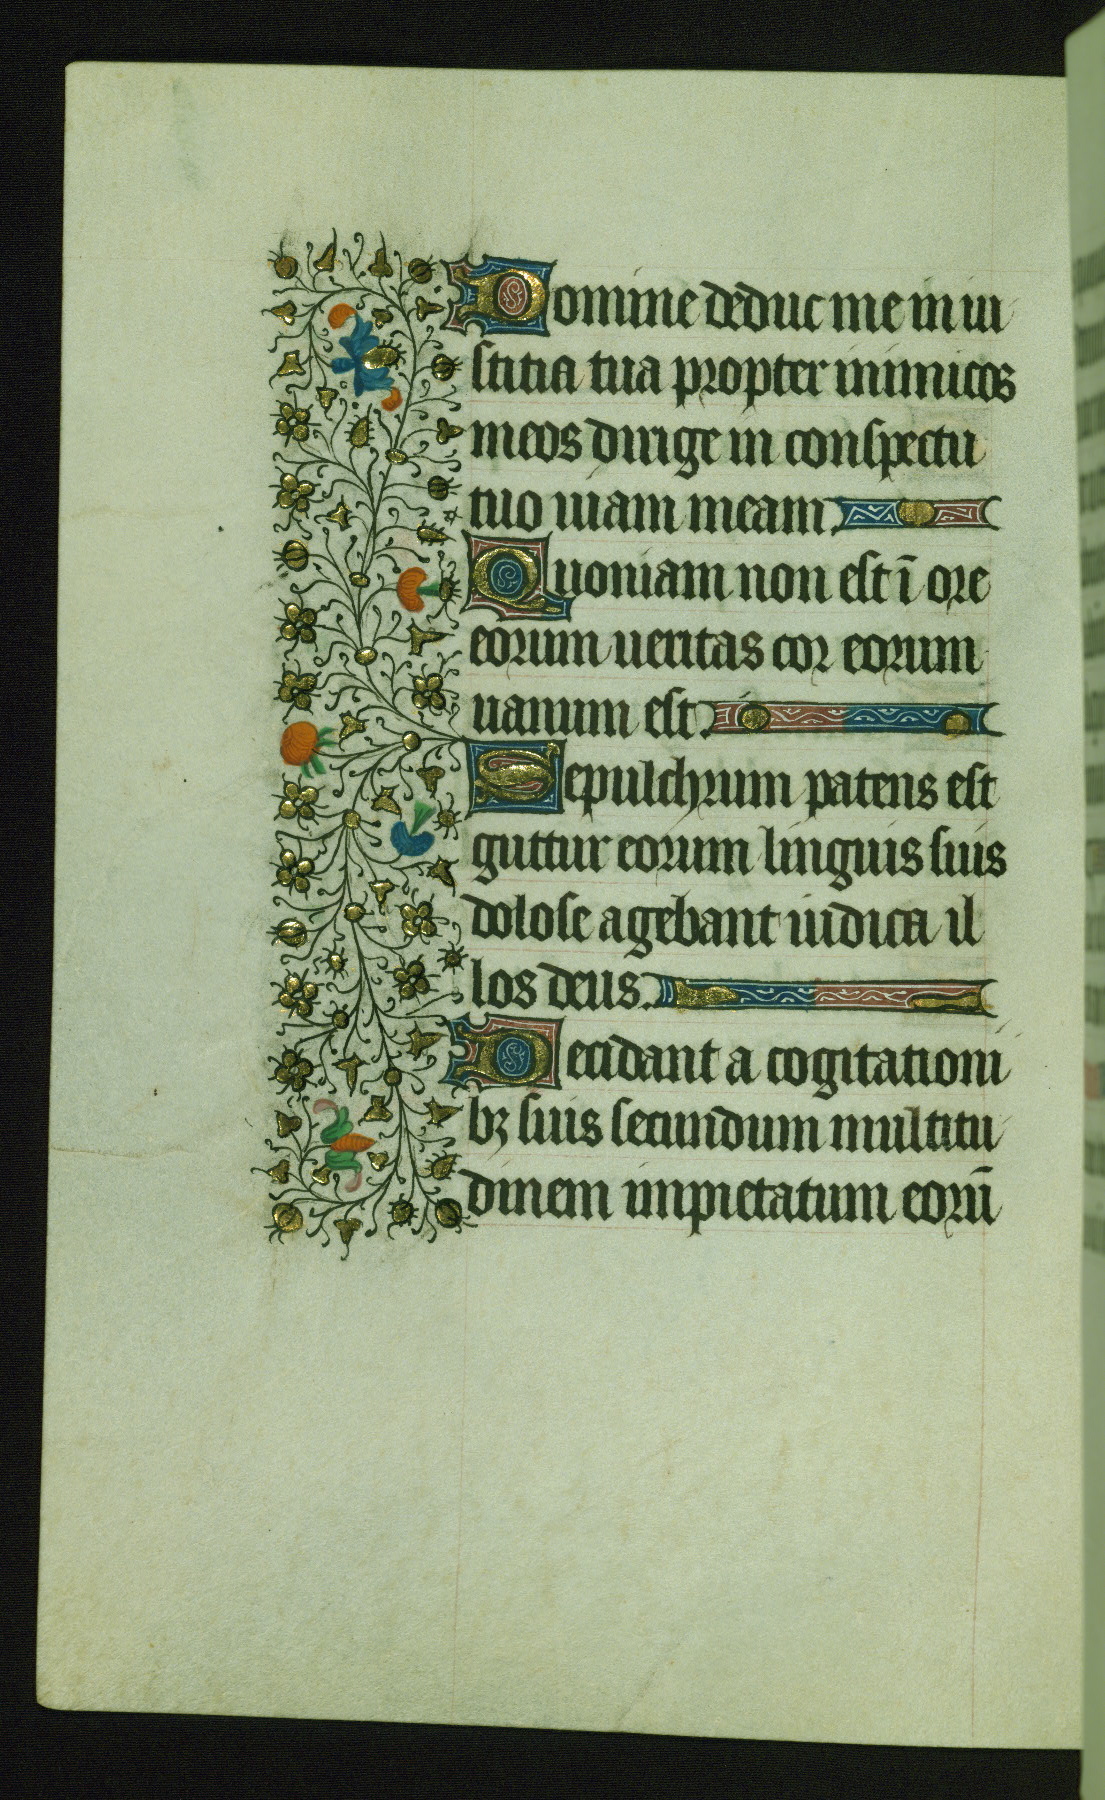 Domine deduc me in iu
stitia tua propter inimicos
meos dirige in conspectu
tuo uiam meam.
Quoniam non est ī ore
eorum ueritas cor eorum
uanum est.
Sepulchrum patens est
guttur eorum linguis suis
dolose agebant iudica il
los deus.
Decidant a cogitationi
bꝫ suis secundum multitu
dinem impietatum eorū